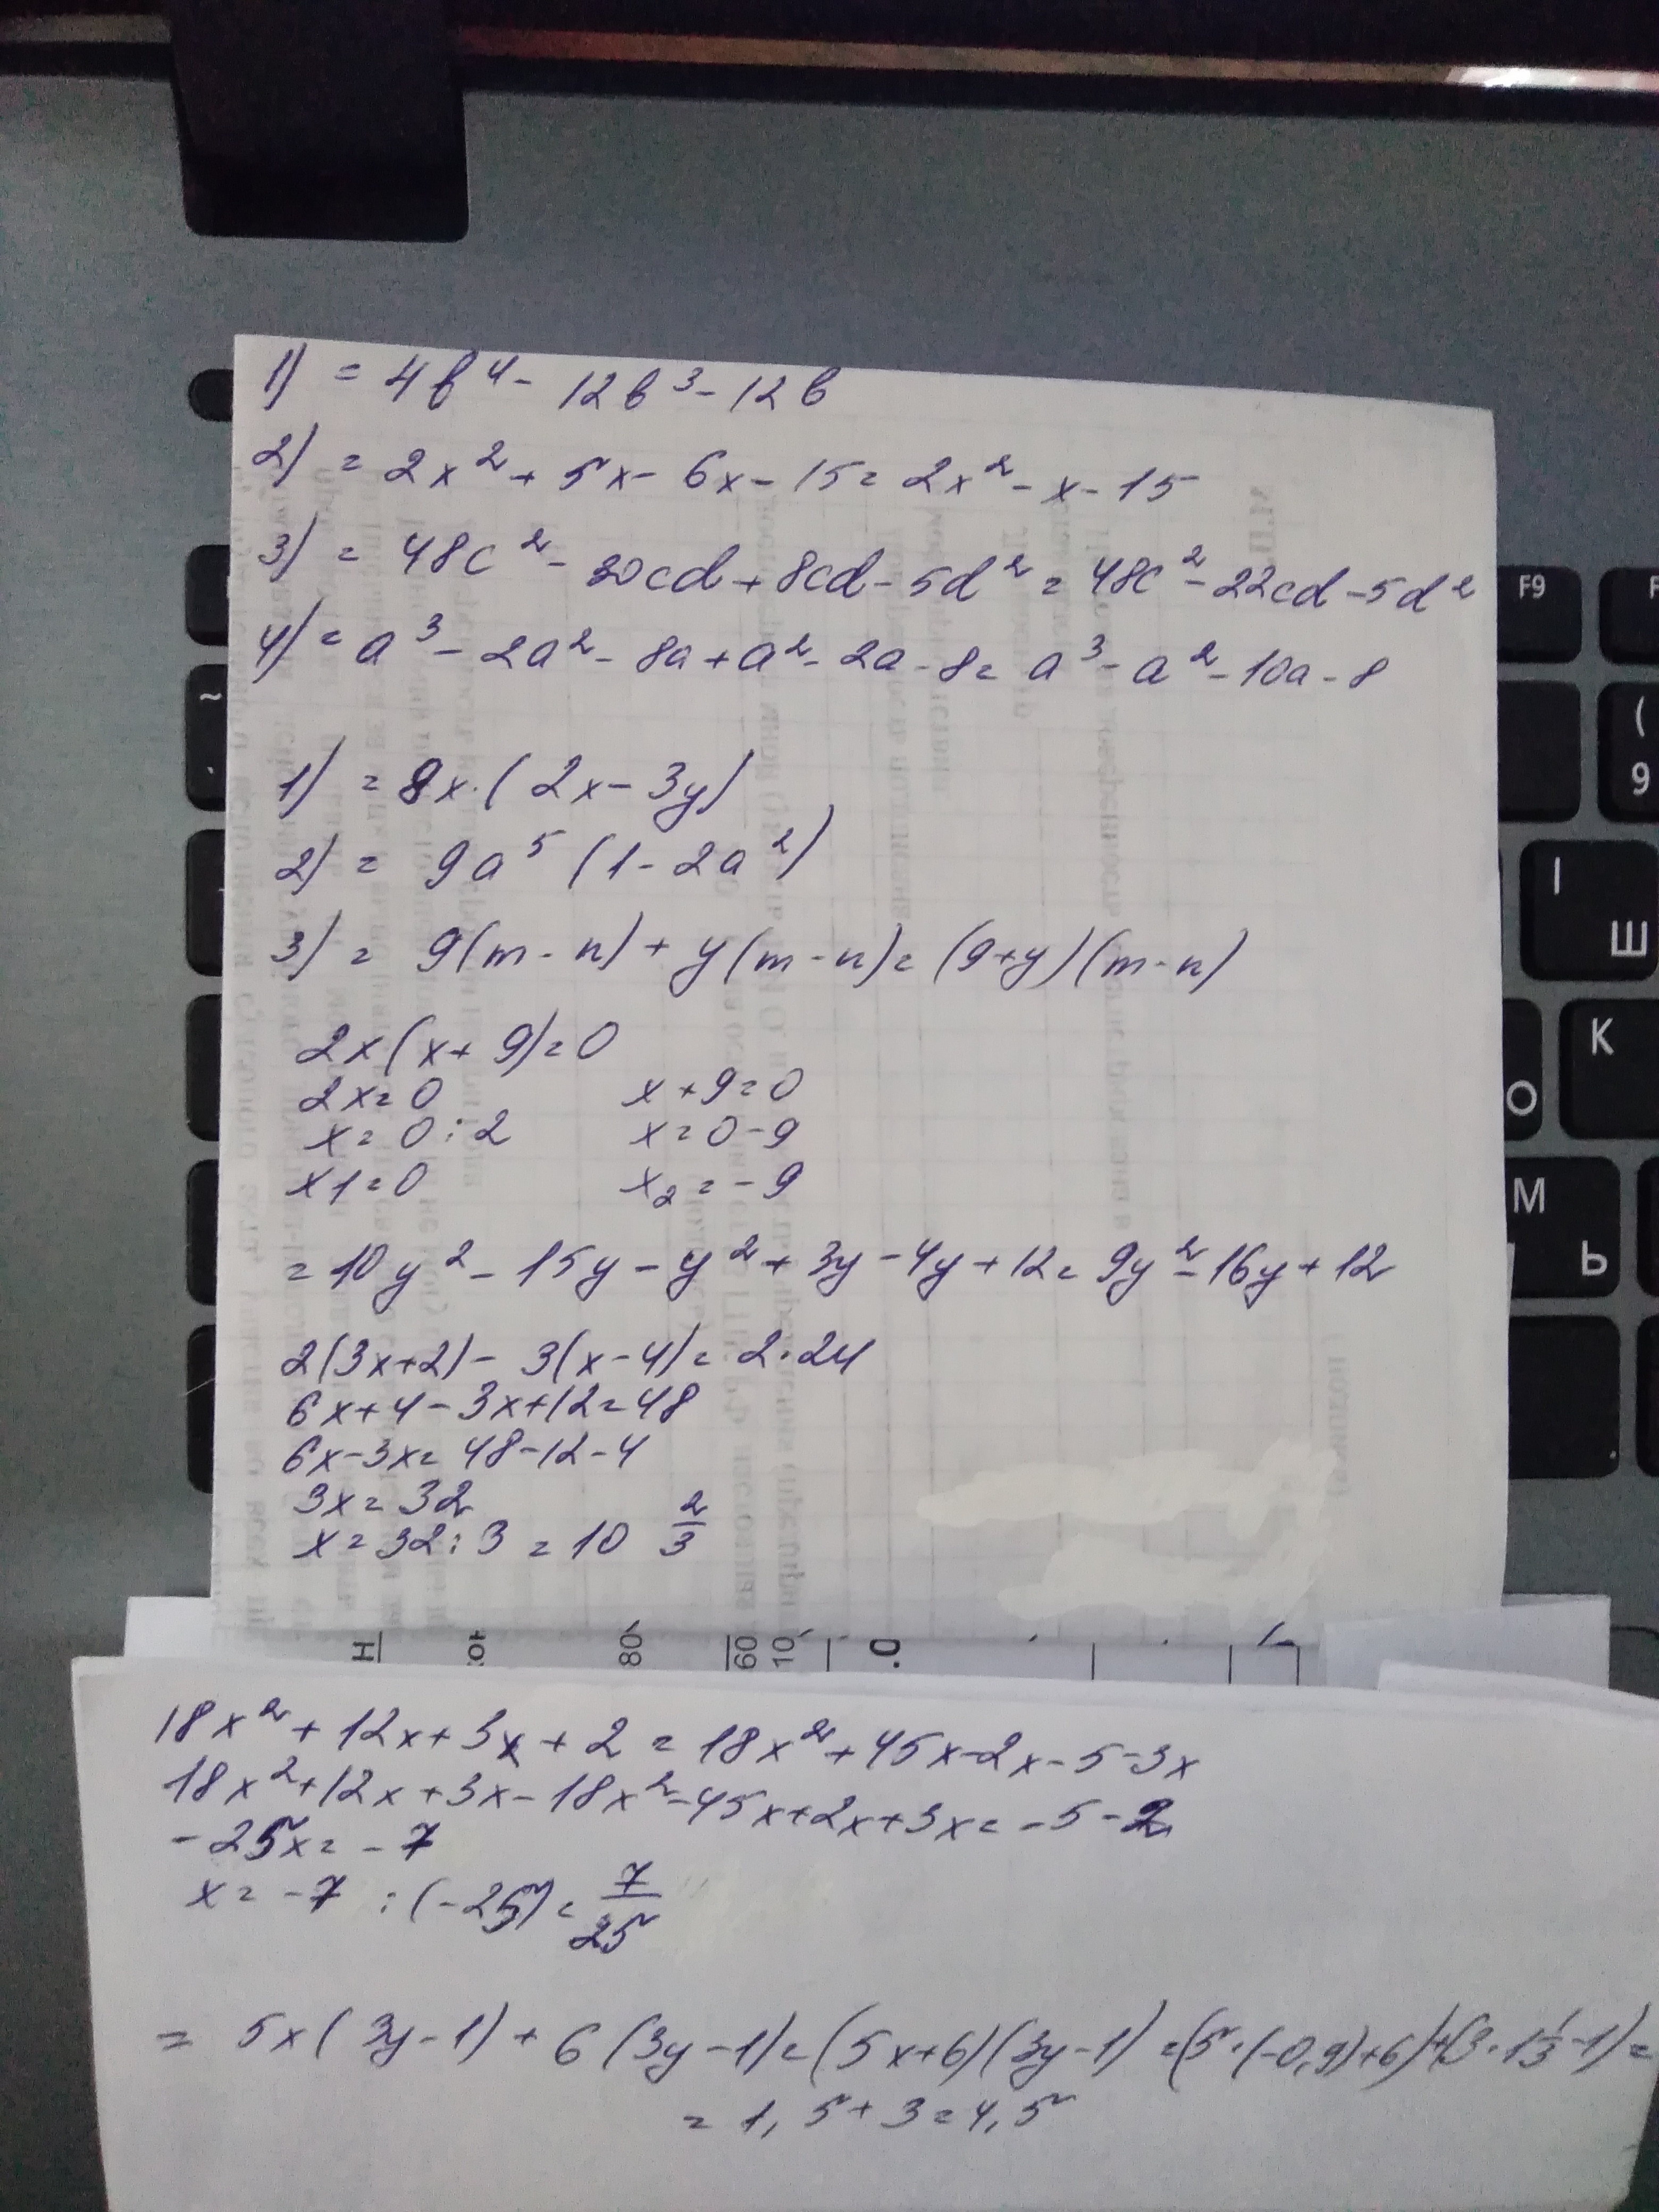 1) = 4b⁴ - 12b³ - 12b
2) = 2x² + 5x - 6x - 15 = 2x² - x - 15
3) = 48c² - 30cd + 8cd - 5d² = 48c² - 22cd - 5d²
4) = a³ - 2a² - 8a + a² - 2a - 8 = a³ - a² - 10a - 8
1) = 8x·(2x - 3y)
2) = 9a⁵(1 - 2a²)
3) = 9(m - n) + y(m - n) = (9+y)(m - n)
2x(x + 9) = 0
2x = 0 x + 9 = 0
x = 0 : 2 x = 0 - 9
x1 = 0 x₂ = -9
= 10y² - 15y - y² + 3y - 4y + 12 = 9y² - 16y + 12
2(3x+2) - 3(x-4) = 2·24
6x+4-3x+12=48
6x-3x=48-12-4
3x=32
x=32:3 = 10 2/3
18x² + 12x + 3x + 2 = 18x² + 45x - 2x - 5 - 3x
18x² + 12x + 3x - 18x² - 45x + 2x + 3x = -5 - 2
-25x = -7
x = -7 : (-25) = 7/25
= 5x(3y-1) + 6(3y-1) = (5x+6)(3y-1) = (5·(-0,9)+6)+(3·1 1/3 -1) =
= 1,5+3=4,5
F9
(
9
~
І
Ш
О
К
М
Ь
Н
80
60
10
.0